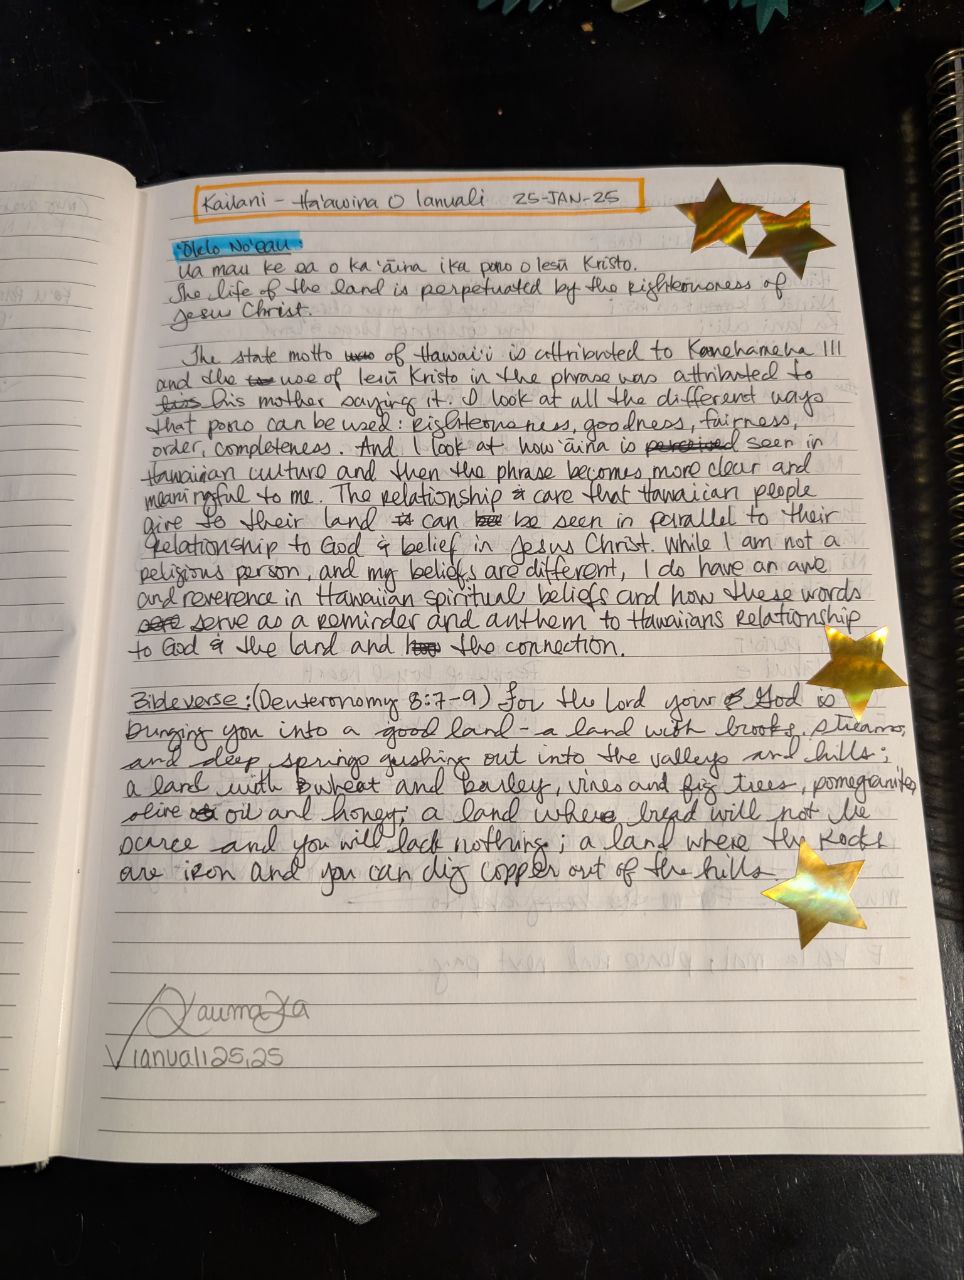 Kailani - Ha'awina O Ianuali 25-JAN-25
'Ōlelo No'eau:
Ua mau ke ea o ka 'āina i ka pono o Iesū Kristo.
The life of the land is perpetuated by the righteousness of
Jesus Christ.
The state motto of Hawai'i is attributed to Kamehameha III
and the use of Iesū Kristo in the phrase was attributed to
his mother saying it. I look at all the different ways
that pono can be used: righteousness, goodness, fairness,
order, completeness. And I look at how 'āina is perceived seen in
Hawaiian culture and then the phrase becomes more clear and
meaningful to me. The relationship & care that Hawaiian people
give to their land can be seen in parallel to their
relationship to God & belief in Jesus Christ. While I am not a
religious person, and my beliefs are different, I do have an awe
and reverence in Hawaiian spiritual beliefs and how these words
serve as a reminder and anthem to Hawaiians relationship
to God & the land and the connection.
Bible verse: (Deuteronomy 8:7-9) For the Lord your God is
bringing you into a good land - a land with brooks, streams,
and deep springs gushing out into the valleys and hills;
a land with wheat and barley, vines and fig trees, pomegranites,
olive oil and honey; a land where bread will not be
scarce and you will lack nothing; a land where the rocks
are iron and you can dig copper out of the hills.
Ianuali 25, 25